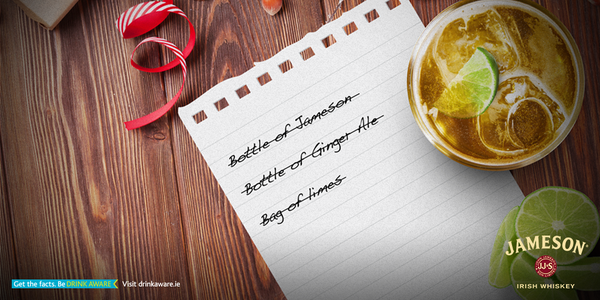 Bottle of Jameson
Bottle of Ginger Ale
Bag of limes
JAMESON
JJ&S
IRISH WHISKEY
Get the facts. Be DRINK AWARE Visit drinkaware.ie